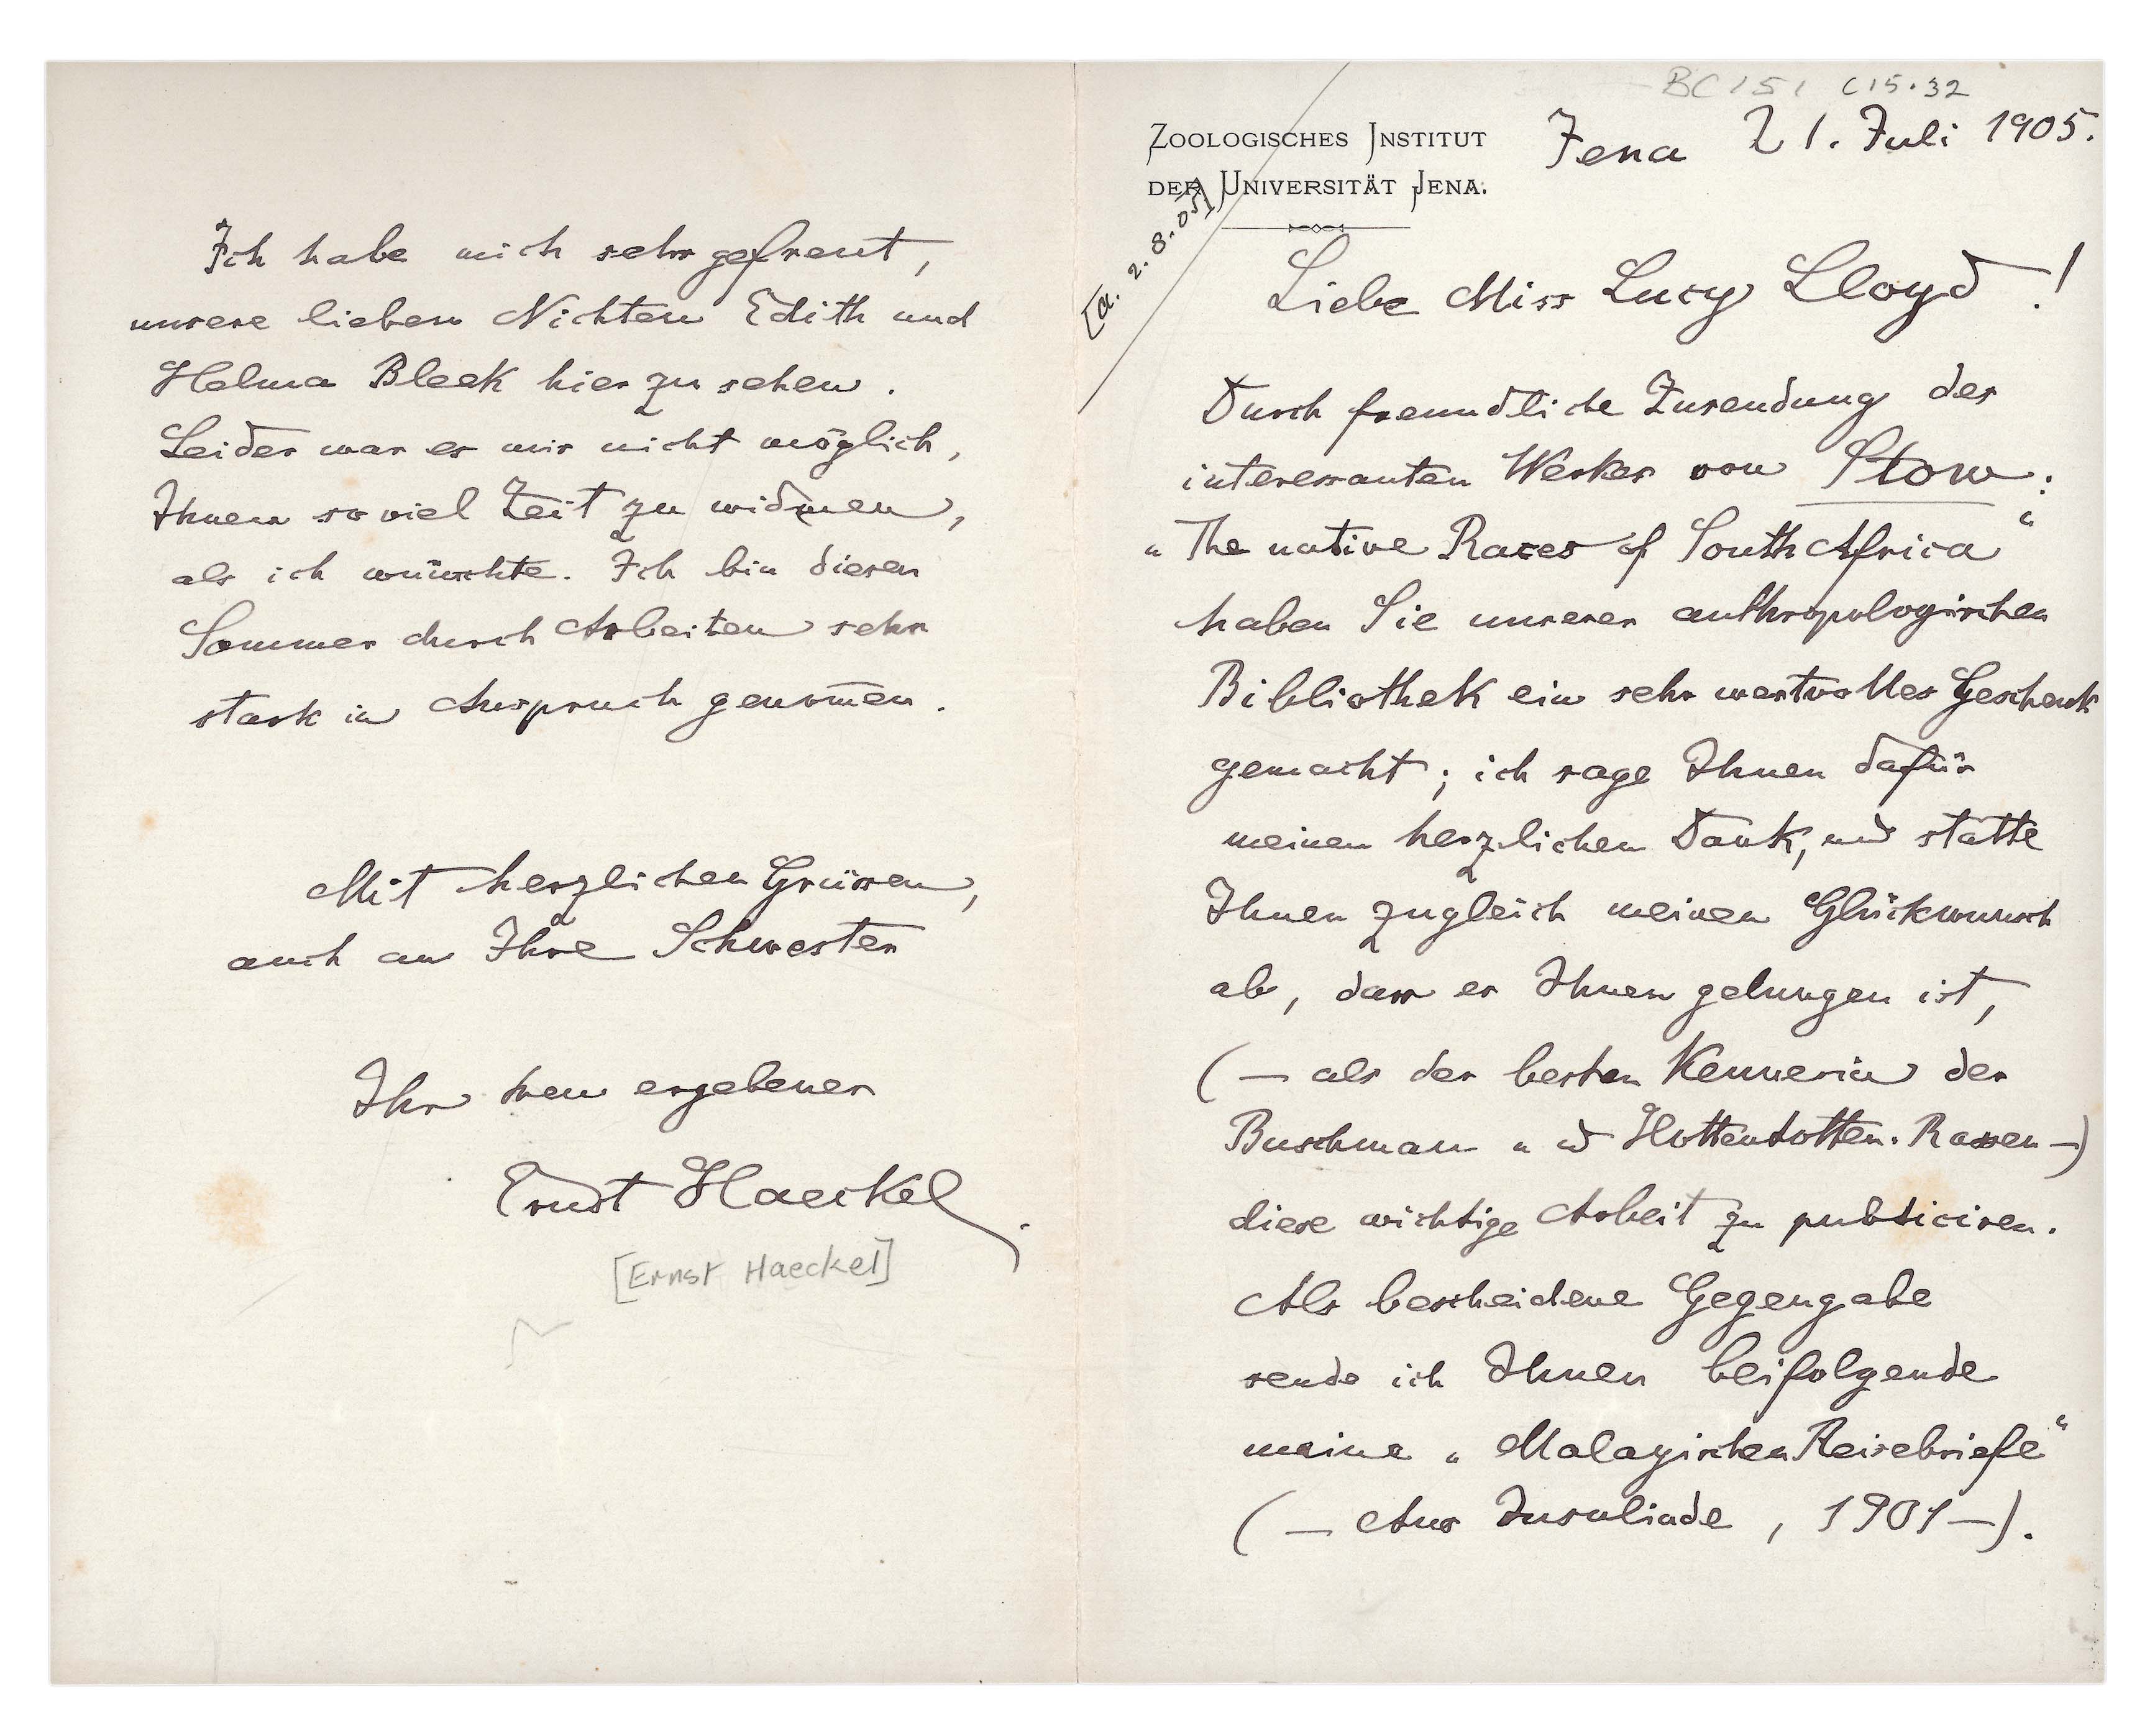 BC 151 C15.32
ZOOLOGISCHES INSTITUT
DER UNIVERSITÄT JENA.
Jena 21. Juli 1905.
[a. 2.8.05]
Liebe Miss Lucy Lloyd!
Durch freundliche Zusendung des
interessanten Werkes von Stow:
„The native Races of South Africa“
haben Sie unserer anthropologischen
Bibliothek ein sehr wertvolles Geschenk
gemacht; ich sage Ihnen dafür
meinen herzlichen Dank, und statte
Ihnen zugleich meinen Glückwunsch
ab, dass es Ihnen gelungen ist,
(— als der besten Kennerin der
Buschmann- u Hottentotten-Rassen —)
diese wichtige Arbeit zu publiciren.
Als bescheidene Gegengabe
sende ich Ihnen beifolgende
meine „Malayischen Reisebriefe“
(— Aus Insulinde, 1901 —).
Ich habe mich sehr gefreut,
unsere lieben Nichten Edith und
Helma Bleek hier zu sehen.
Leider war es mir nicht möglich,
Ihnen so viel Zeit zu widmen,
als ich wünschte. Ich bin diesen
Sommer durch Arbeiten sehr
stark in Anspruch genom̅en.
Mit herzlichen Grüssen,
auch an Ihre Schwester
Ihr treu ergebener
Ernst Haeckel.
[Ernst Haeckel]